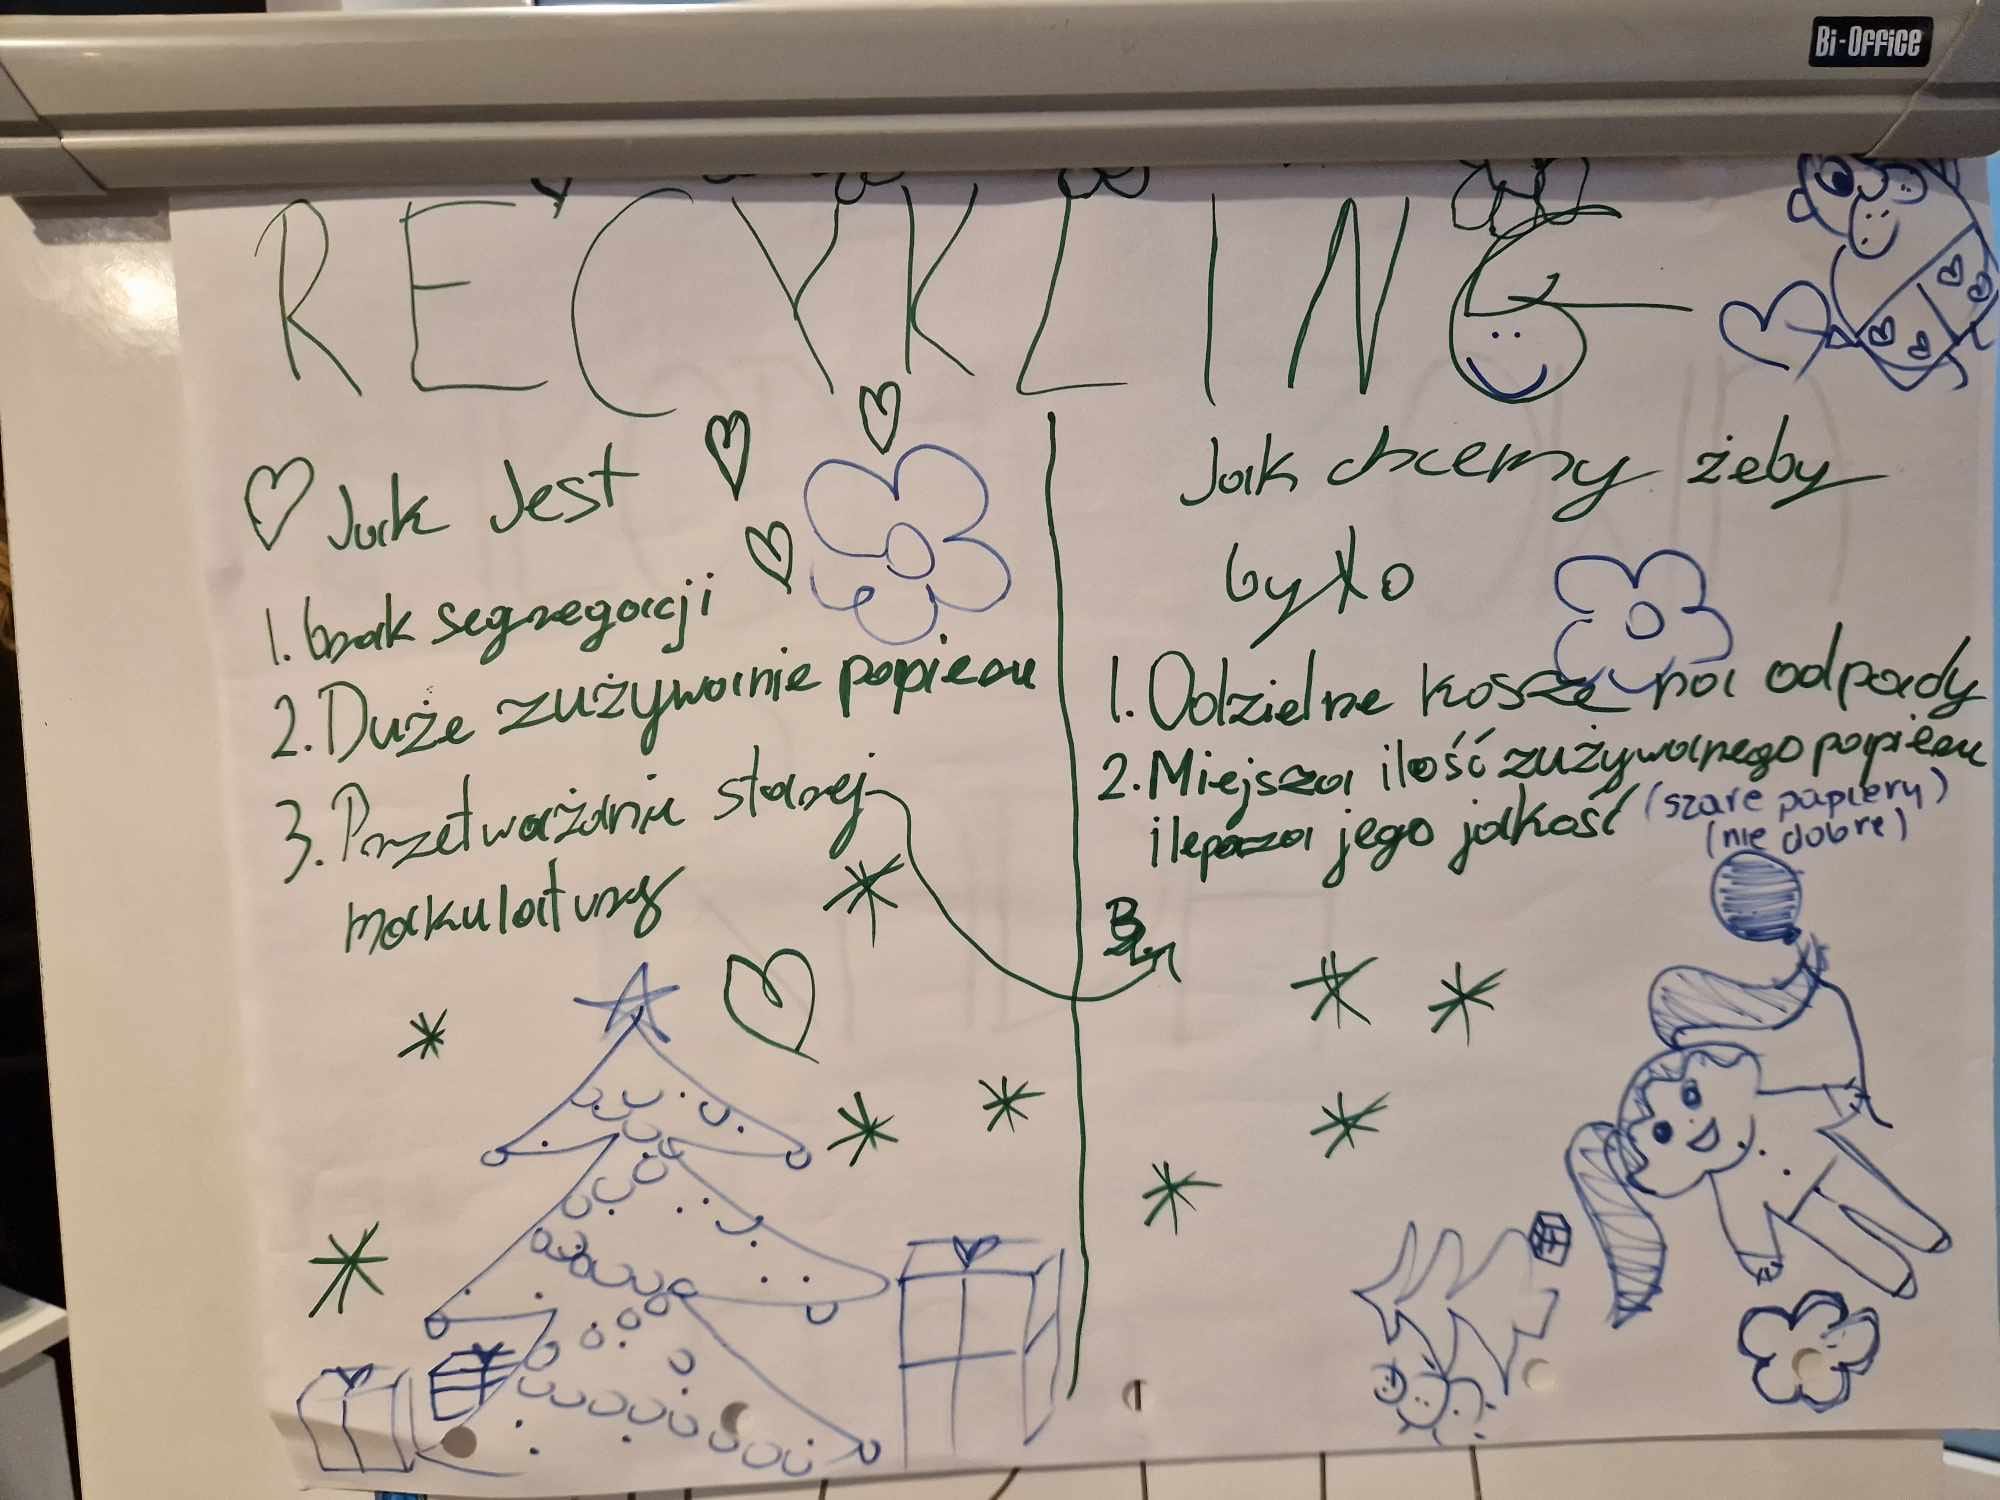 Bi-Office
RECYKLING
Jak Jest
1. brak segregacji
2. Duże zużywanie papieru
3. Przetważanie starej
makulatury
Jak chcemy żeby
było
1. Oddzielne kosze na odpady
2. Miejsza ilość zużywanego papieru
i lepsza jego jakość (szare papiery)
(nie dobre)